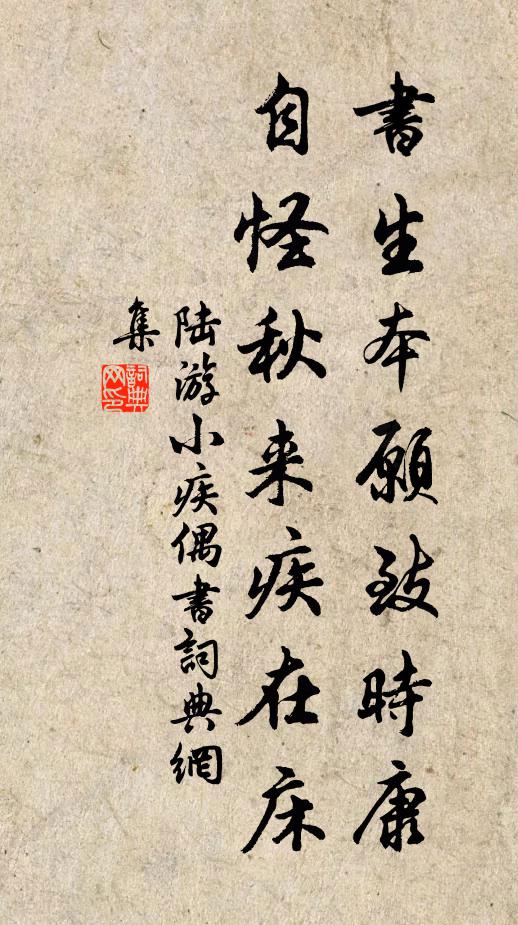 書生本願致時康
自怪秋来疾在床
陆游小疾偶書詞典網
集
詞典
网印